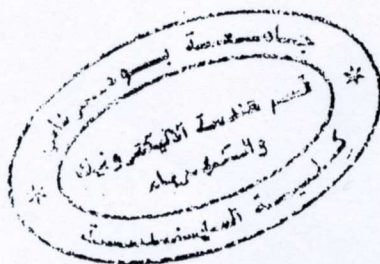 جامعة بومرداس
قسم هندسة الالكترونيك
والكهرباء
كلية الهندسة